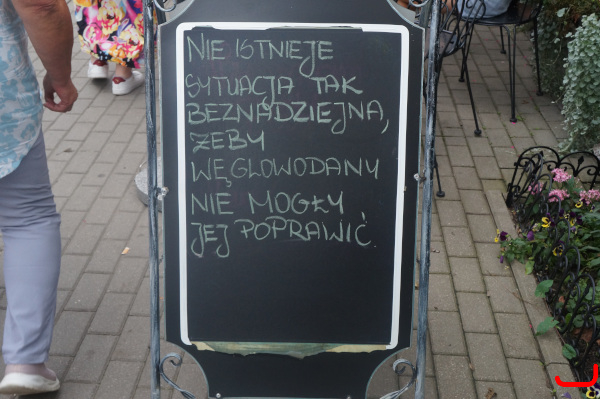 NIE ISTNIEJE
SYTUACJA TAK
BEZNADZIEJNA,
ŻEBY
WĘGLOWODANY
NIE MOGŁY
JEJ POPRAWIĆ.